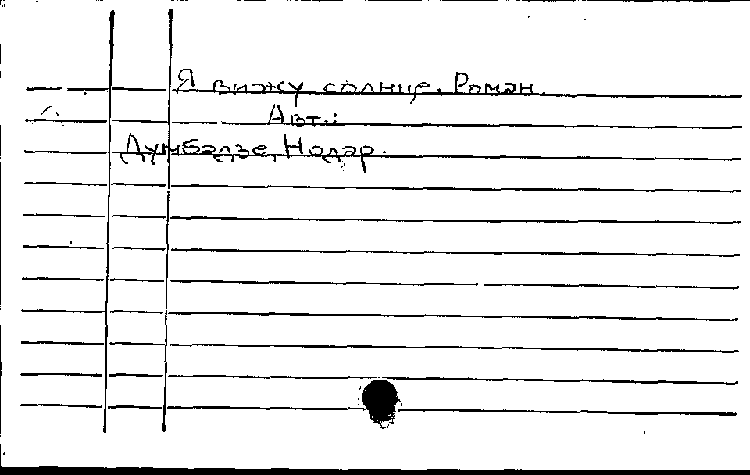 Я вижу солнце. Роман.
Авт.:
Думбадзе, Нодар.